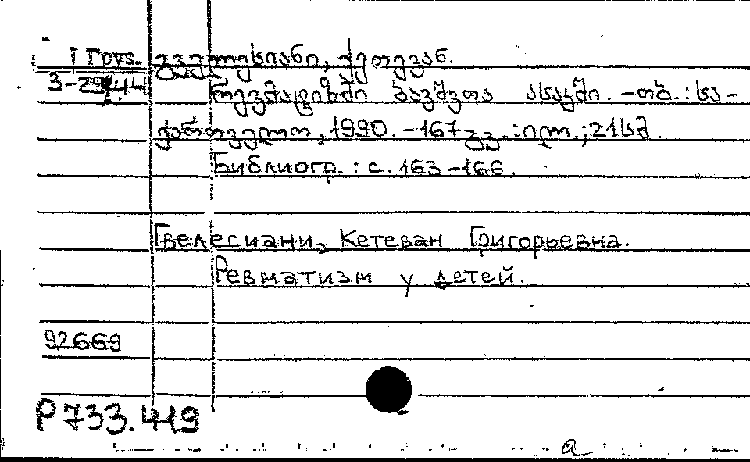 I Груз. გველესიანი, ქეთევან.
3-29144 რევმატიზმი ბავშვთა ასაკში. -თბ.: სა-
ქართველო, 1990. -167 გვ.: ილ.; 21 სმ.
Библиогр.: с. 163-166.
Гвелесиани, Кетеван Григорьевна.
Ревматизм у детей.
92669
P733.419
a